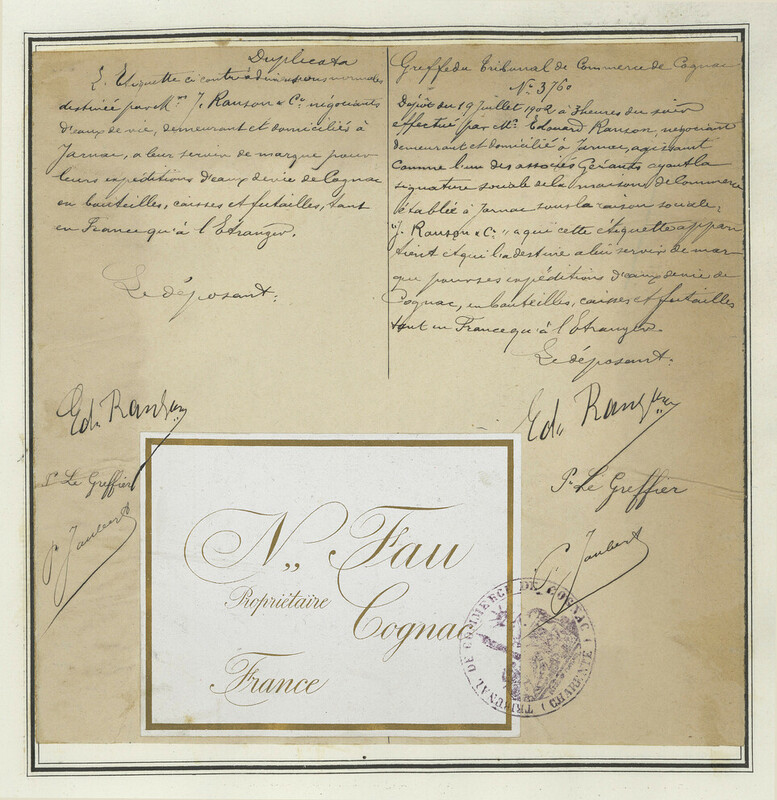 Duplicata
L'Etiquette ci contre à dimensions normales
destinée par Mrs J. Ranson & Co négociants
d'eaux de vie, demeurant et domiciliés à
Jarnac, a leur servir de marque pour
leurs expéditions d'eaux de vie de Cognac
en bouteilles, caisses et futailles, tant
en France qu'à l'Etranger.
Le déposant:
Ed. Ranson
P. Le Greffier
P. Jaubert
Greffe du Tribunal de Commerce de Cognac
No 3760
Dépôt du 19 Juillet 1902 à 3 heures du soir
effectué par Mr Edouard Ranson, négociant
demeurant et domicilié à Jarnac, agissant
comme l'un des associés Gérants ayant la
signature sociale de la maison de Commerce
établie à Jarnac sous la raison sociale,
"J. Ranson & Co" a qui cette étiquette appar
tient et qui la destine à lui servir de mar
que pour ses expéditions d'eaux de vie de
Cognac, en bouteilles, caisses et futailles
tant en France qu'à l'Etranger.
Le déposant:
Ed. Ranson
P. Le Greffier
P. Jaubert
N,, Fau
Propriétaire
Cognac
France
TRIBUNAL DE COMMERCE DE COGNAC (CHARENTE)